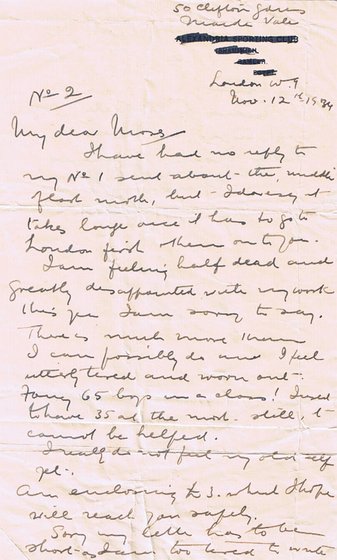 50 Clifton Gdns
Maida Vale
ALEXANDRIA SPORTING CLUB
London W.9
Nov. 12th 1934
No 2
My dear Moses
I have had no reply to
my No 1 sent about the middle
of last month, but I daresay it
takes longer once it has to go to
London first then on to you.
I am feeling half dead and
greatly disappointed with my work
this yr I am sorry to say.
There is much more than
I can possibly do and I feel
utterly tired and worn out.
Fancy 65 boys in a class! I used
to have 35 at the most. Still it
cannot be helped.
I really do not feel my old self
yet.
Am enclosing £3. which I hope
will reach you safely.
Sorry my letter has to be
short as I am too tired to write